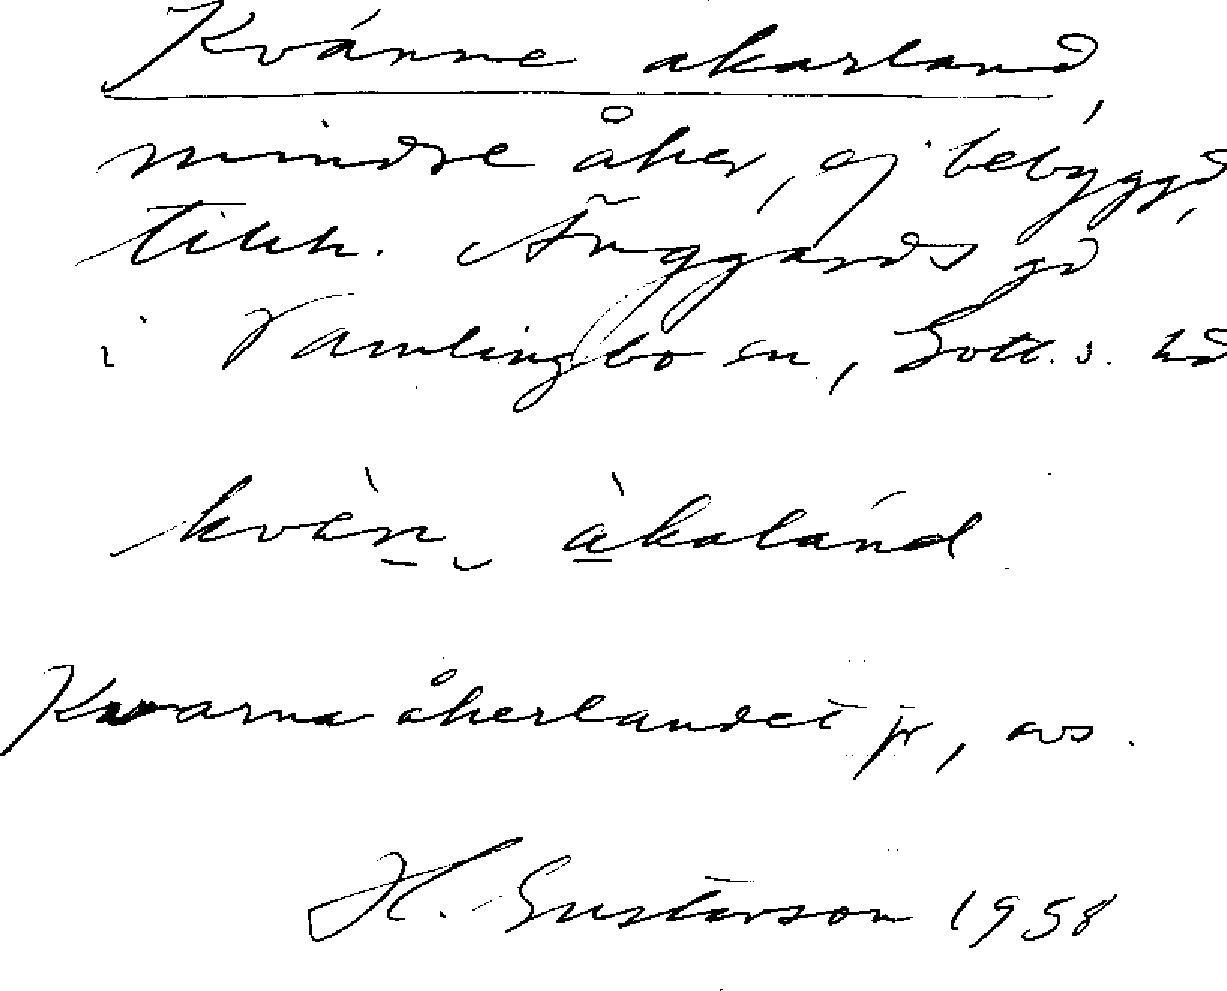 Kvánne akarland,
mindre åker, ej bebyggd,
tillh. Änggårds gd
i Vamlingbo sn, Gotl. s. hd
kvàn àkaland
Kvarna åkerlandet jr, avs.
H. Gustavson 1958